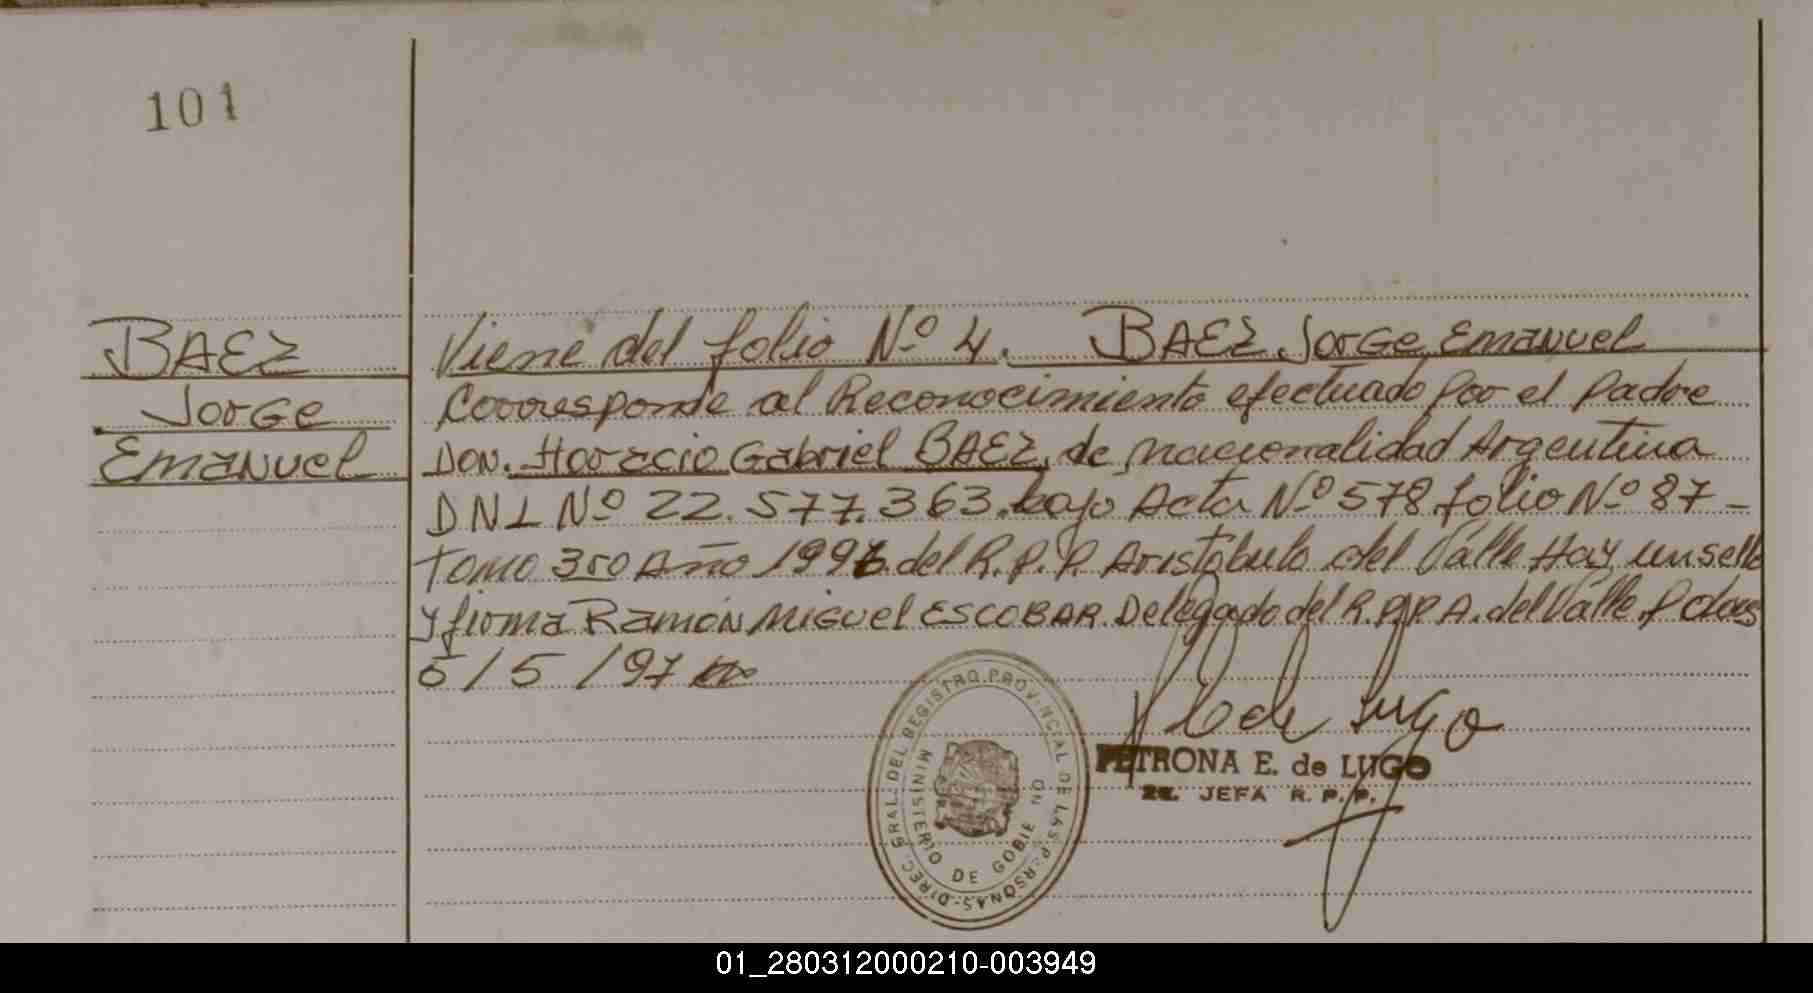 101
BAEZ
Jorge
Emanuel
Viene del folio Nº 4. BAEZ Jorge Emanuel
Corresponde al Reconocimiento efectuado por el Padre
Don. Horacio Gabriel BAEZ, de nacionalidad Argentina
DNI Nº 22.577.363. bajo Acta Nº 578 folio Nº 87 -
Tomo 3ro Año 1996 del R.P.P. Aristóbulo del Valle Hay un sello
y firma Ramón Miguel ESCOBAR Delegado del R.P.P A. del Valle Pdas
5/5/97
DIREC. GRAL. DEL REGISTRO PROVINCIAL DE LAS PERSONAS
MINISTERIO DE GOBIERNO
de Lugo
PETRONA E. de LUGO
2a. JEFA R. P. P.
01_280312000210-003949